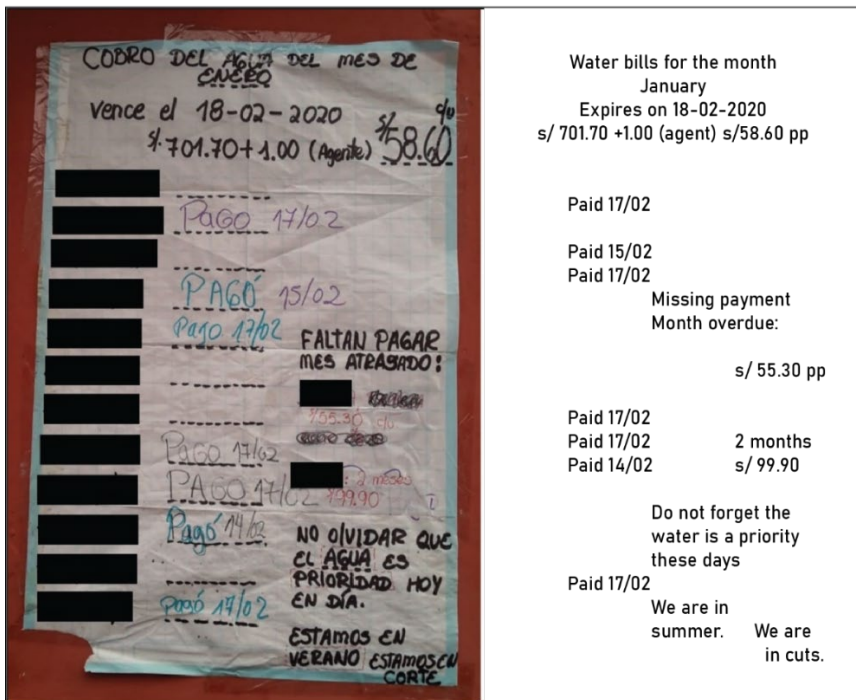 COBRO DEL AGUA DEL MES DE
ENERO
vence el 18-02-2020
c/u
s/. 701.70 + 1.00 (Agente) s/ 58.60
PAGO 17/02
PAGÓ 15/02
Pago 17/02
FALTAN PAGAR
MES ATRASADO:
55.30 c/u
PAGO 17/02
: 2 meses
PAGO 17/02
99.90
Pagó 14/02
NO OLVIDAR QUE
EL AGUA ES
PRIORIDAD HOY
EN DÍA.
pagó 17/02
ESTAMOS EN
VERANO ESTAMOS EN
CORTE
Water bills for the month
January
Expires on 18-02-2020
s/ 701.70 +1.00 (agent) s/58.60 pp
Paid 17/02
Paid 15/02
Paid 17/02
Missing payment
Month overdue:
s/ 55.30 pp
Paid 17/02
Paid 17/02 2 months
Paid 14/02 s/ 99.90
Do not forget the
water is a priority
these days
Paid 17/02
We are in
summer. We are
in cuts.